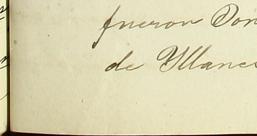 fueron Don
de Yllanes